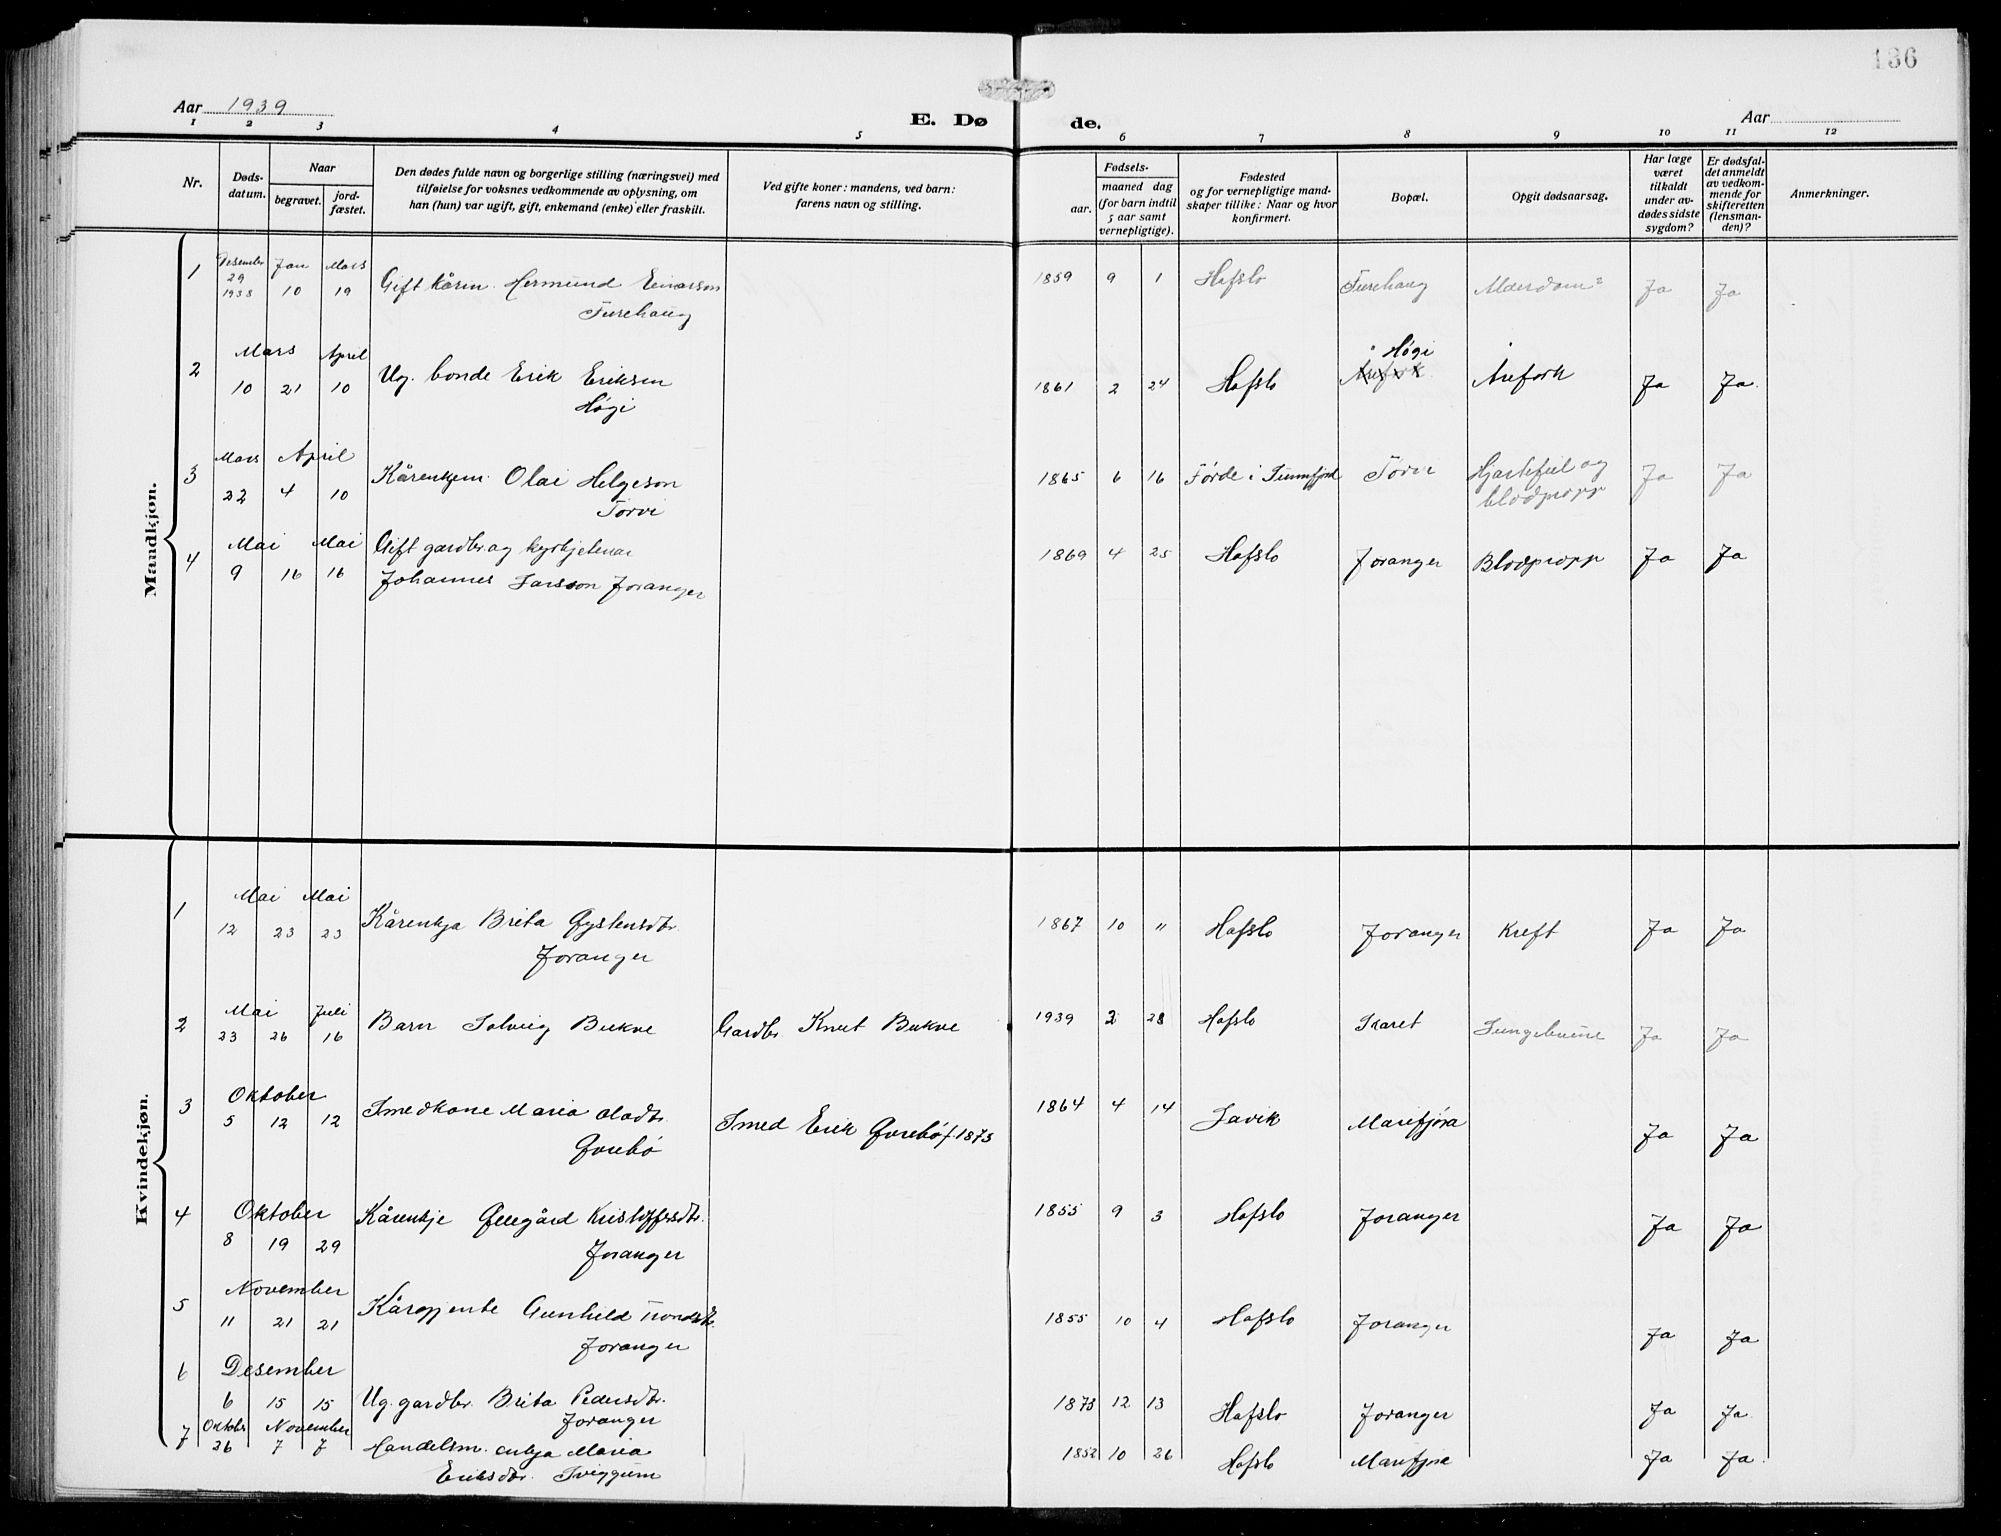 136
Aar 1939
E. Dø
de.
Aar
1 2 3 4 5 6 7 8 9 10 11 12
Nr.
Døds-
datum.
Naar
begravet.
jord-
fæstet.
Den dødes fulde navn og borgerlige stilling (næringsvei) med
tilføielse for voksnes vedkommende av oplysning, om
han (hun) var ugift, gift, enkemand (enke) eller fraskilt.
Ved gifte koner: mandens, ved barn:
farens navn og stilling.
Fødsels-
aar.
maaned dag
(for barn indtil
5 aar samt
vernepligtige).
Fødested
og for vernepligtige mand-
skaper tillike: Naar og hvor
konfirmert.
Bopæl.
Opgit dødsaarsag.
Har læge
været
tilkaldt
under av-
dødes sidste
sygdom?
Er dødsfal-
det anmeldt
av vedkom-
mende for
skifteretten
(lensman-
den)?
Anmerkninger.
Mandkjøn.
1 Desember 29 1938 Jan 10 Mars 19 Gift kårm. Hermund Einarson
Turehaug
1859 9 1 Hafslo Turehaug Alderdom Ja Ja
2 Mars 10 21 April 10 Ug. bonde Erik Eriksen
Høgi
1861 2 24 Hafslo Høgi Årefork Årefork Ja Ja.
3 Mars 22 April 4 10 Kårenkjem. Olai Helgeson
Torvi
1865 6 16 Førde i Sunnfjord Torvi Hjartefeil og
blodpropp
Ja Ja
4 Mai 9 16 Mai 16 Gift gardbr. og kyrkjetenar
Johannes Larsson Joranger
1869 4 25 Hafslo Joranger Blodpropp Ja Ja
Kvindekjøn.
1 Mai 12 23 Mai 23 Kårenkja Brita Øystensdtr.
Joranger
1867 10 " Hafslo Joranger Kreft Ja Ja
2 Mai 23 26 Juli 16 Barn Solveig Bukve Gardbr Knut Bukve 1939 2 28 Hafslo Skaret Lungebetene Ja Ja
3 Oktober 5 12 12 Smedkone Maria Oladtr.
Øvrebø
Smed Erik Øvrebø f. 1873 1864 4 14 Lavik Marifjøra Ja Ja
4 Oktober 8 19 29 Kårenkje Øllegård Kristoffersdtr.
Joranger
1855 9 3 Hafslo Joranger Ja Ja
5 November 11 21 21 Kårgjente Gunhild Trondsdtr.
Joranger
1855 10 4 Hafslo Joranger Ja Ja
6 Desember 6 15 15 Ug. gardbr. Brita Pedersdtr.
Joranger
1873 12 13 Hafslo Joranger Ja Ja.
7 Oktober 26 November 7 7 Handelsm. enkja Maria
Eriksdtr. Sviggum
1852 10 26 Hafslo Marifjøra Ja Ja.